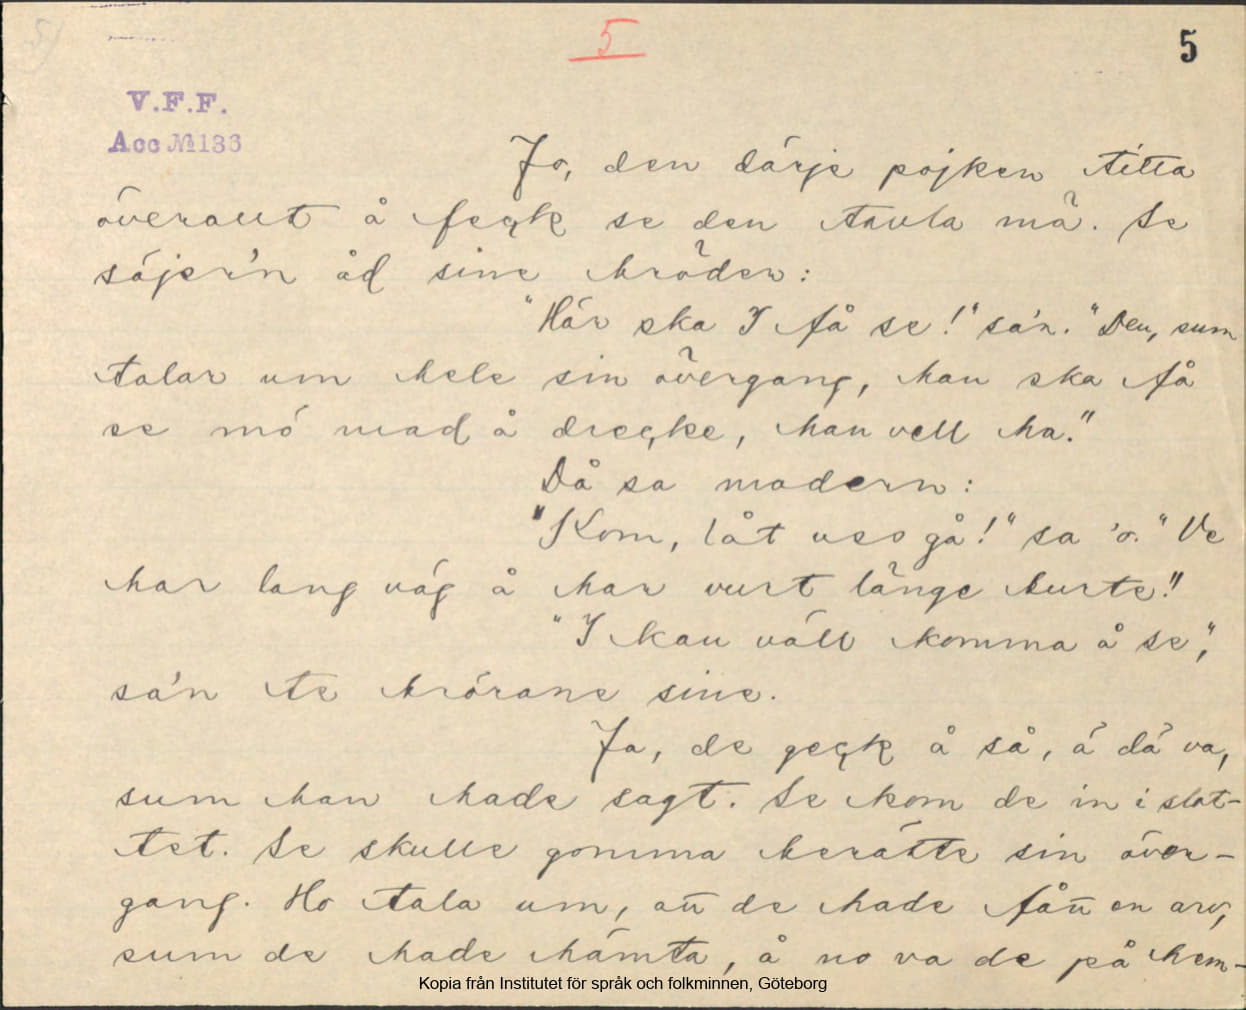 5
5
V.F.F.
Acc № 133
Jo, den därje pojken titta
överallt å feçk se den tavla mä. Se
säjer'n åd sine bröder:
"Här ska I få se!" sa'n. "Den, sum
talar um hele sin övergang, han ska få
se mö mad å dreçke, han vell ha."
Då sa modern:
"Kom, låt uss gå!" sa 'o. "Ve
har lang väg å har vurt länge burte!"
"I kan väll komma å se",
sa'n te brörane sine.
Ja, de geçk å så, å dä va,
sum han hade sagt. Se kom de in i slot-
tet. Se skulle gomma berätte sin över-
gang. Ho tala um, att de hade fått en arv,
sum de hade hämta, å no va de på hem-
Kopia från Institutet för språk och folkminnen, Göteborg